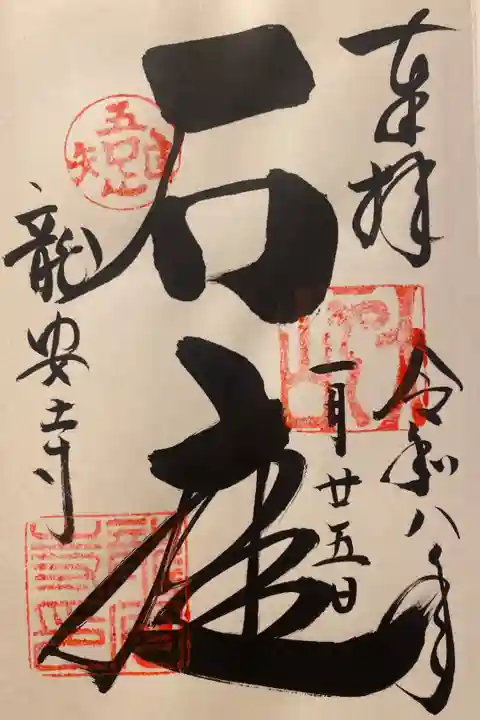 奉拝
令和八年
一月廿五日
石庭
吾唯足知
龍安寺